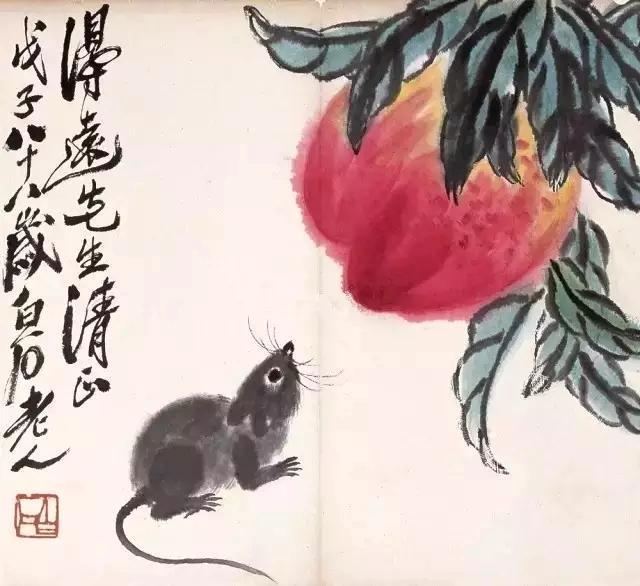 得遠先生清正
戊子八十八歲白石老人